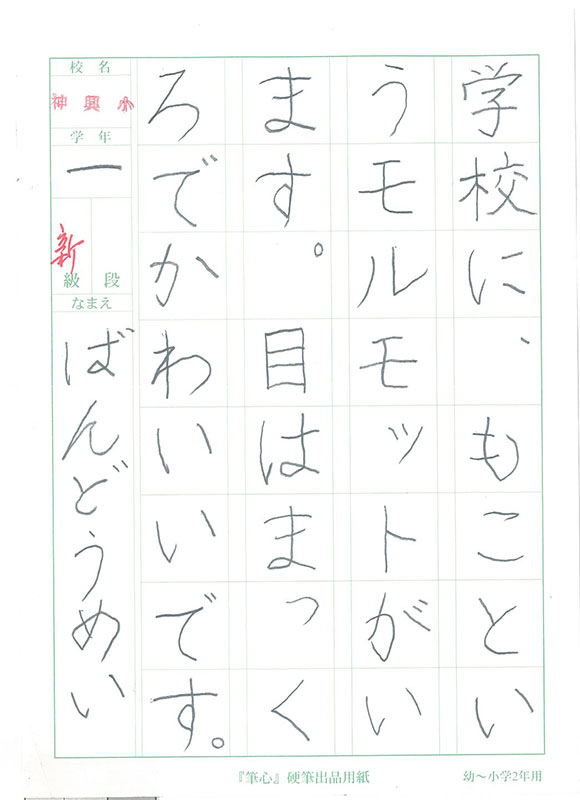 学校に、もことい
うモルモットがい
ます。目はまっく
ろでかわいいです。
校名
神興小
学年
一
新
級 段
なまえ
ばんどうめい
『筆心』硬筆出品用紙
幼~小学2年用